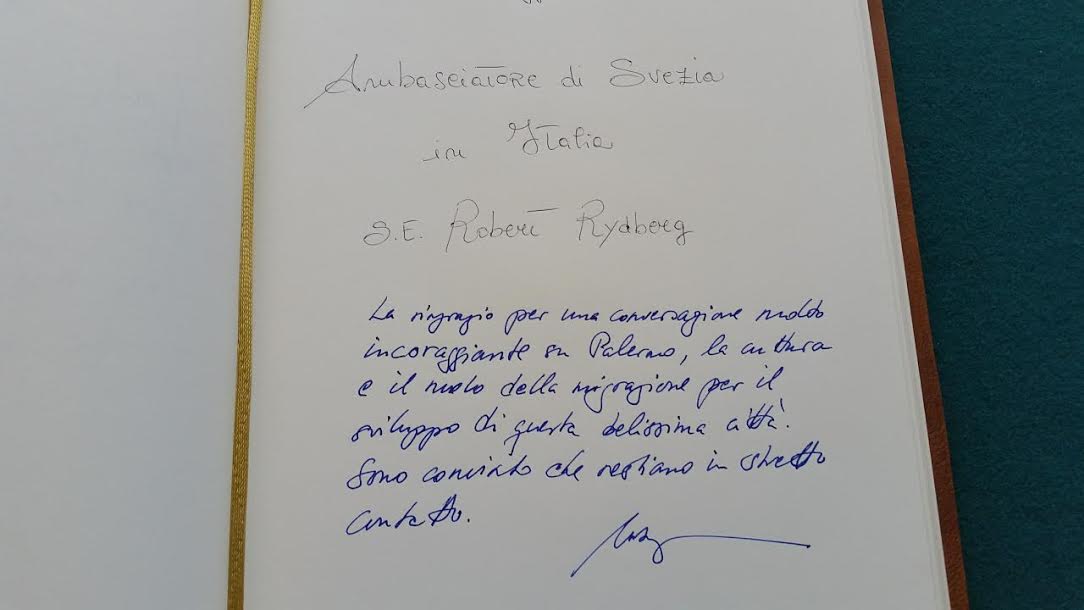 Ambasciatore di Svezia
in Italia
S.E. Robert Rydberg
La ringrazio per una conversazione molto
incoraggiante su Palermo, la cultura
e il ruolo della migrazione per il
sviluppo di questa belissima città.
Sono convinto che restiamo in stretto
contatto.